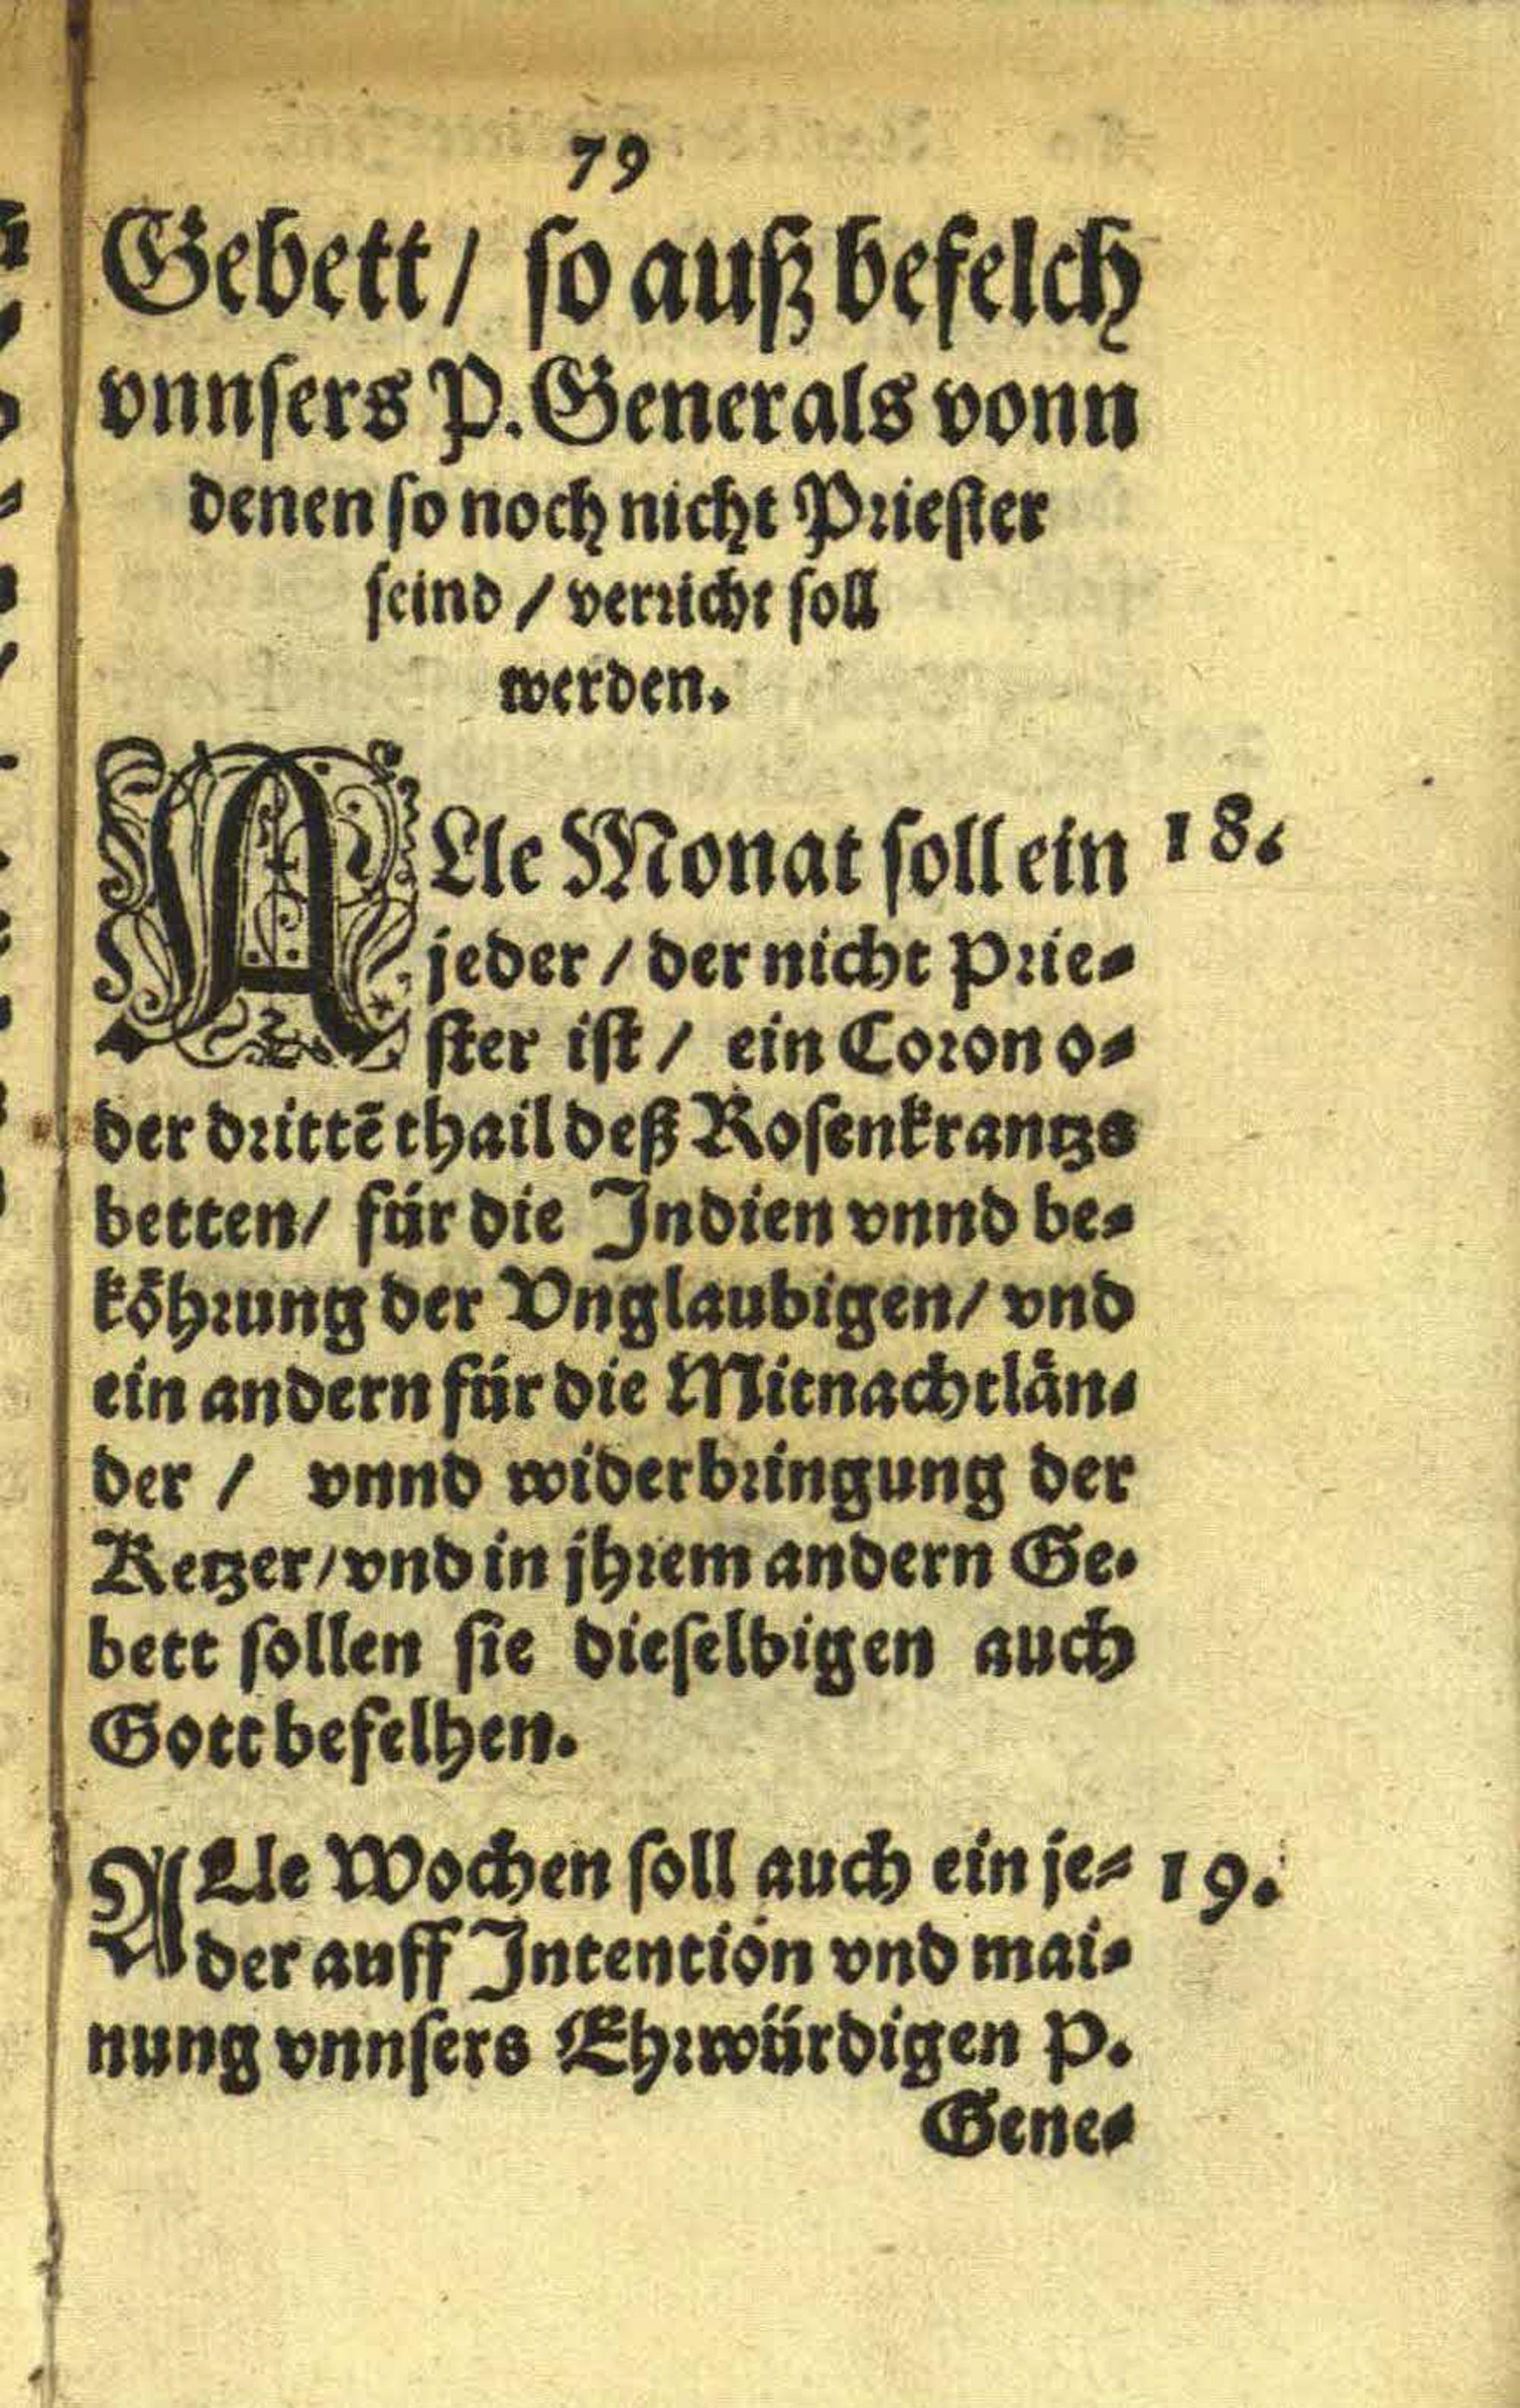 79
Gebett/ so auß befelch
vnnsers P. Generals vonn
denen so noch nicht Priester
seind / verricht soll
werden.
ALle Monat soll ein 18.
jeder / der nicht Prie-
ster ist / ein Coron o-
der drittē thail deß Rosenkrantzs
betten/ für die Indien vnnd be-
köhrung der Vnglaubigen/ vnd
ein andern für die Mitnachtlän-
der / vnnd widerbringung der
Ketzer/ vnd in jhrem andern Ge-
bett sollen sie dieselbigen auch
Gott befelhen.
ALle Wochen soll auch ein je- 19.
der auff Intention vnd mai-
nung vnnsers Ehrwürdigen P.
Gene-